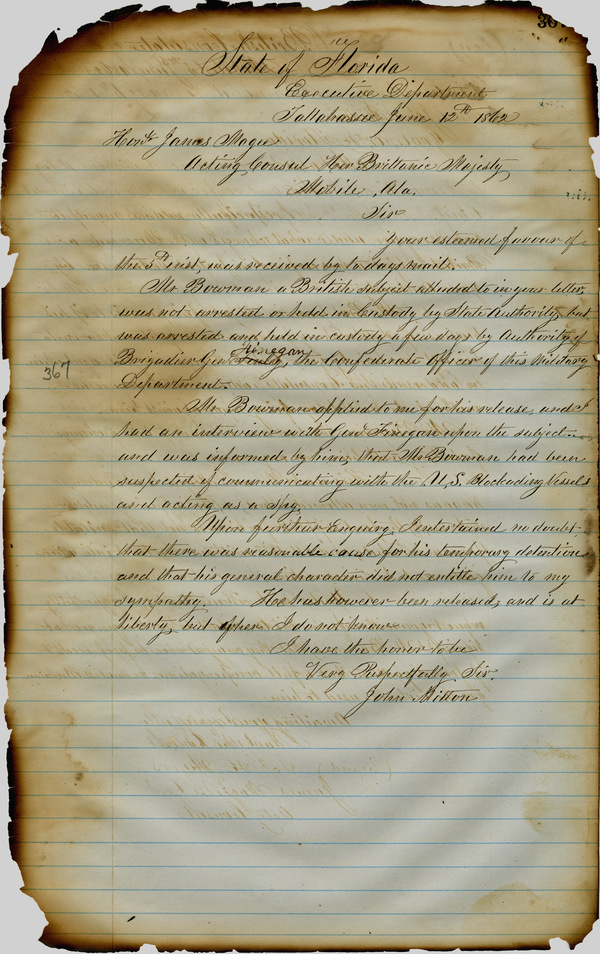 36
State of Florida
Executive Department
Tallahassee June 12th 1862
Honble James Magee
Acting Consul Her Brittanic Majesty
Mobile, Ala.
Sir
Your esteemed favour of
the 5th inst, was received by to days mail.
Mr Bowman a British subject alluded to in your letter,
was not arrested or held in Custody by State Authority, but
was arrested and held in custody a few days by Authority of
Brigadier Genl Finegan, the Confederate Officer of this Military
367
Department.
Mr Bowman applied to me for his release, and I
had an interview with Genl Finegan upon the subject
and was informed by him, that Mr Bowman had been
suspected of communicating with the U, S, Blockading Vessels
and acting as a Spy.
Upon further Enquiry, I entertained no doubt,
that there was reasonable cause for his temporary detention
and that his general character did not entitle him to my
sympathy. He has however been released, and is at
liberty, but when I do not know
I have the honor to be
Very Respectfully Sir.
John Milton